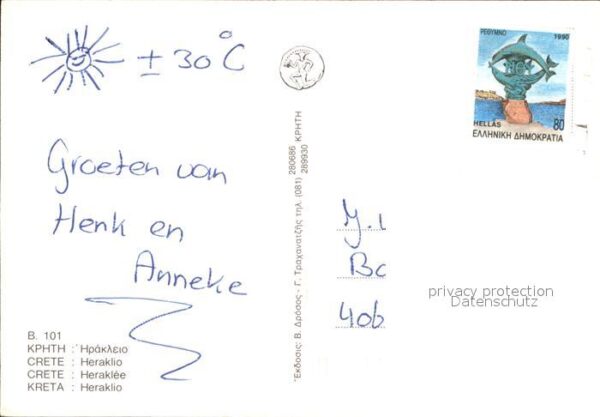 ± 30 °C
Groeten van
Henk en
Anneke
B. 101
ΚΡΗΤΗ : Ἡράκλειο
CRETE : Heraklio
CRETE : Heraklée
KRETA : Heraklio
Ἐκδοσις: Β. Δρόσος - Γ. Τραχανατζῆς τηλ. (081) 280686 289930 ΚΡΗΤΗ
ΡΕΘΥΜΝΟ 1990
HELLAS 80
ΕΛΛΗΝΙΚΗ ΔΗΜΟΚΡΑΤΙΑ
Bc
40b
privacy protection
Datenschutz